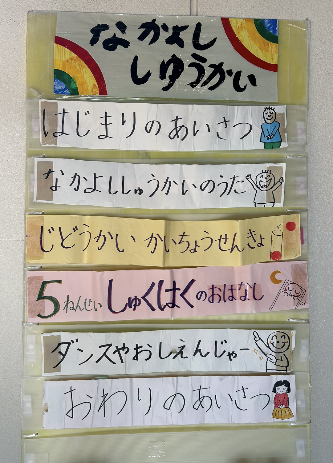 なかよし
しゅうかい
はじまりのあいさつ
なかよししゅうかいのうた
じどうかい かいちょうせんきょ
5ねんせい しゅくはくのおはなし
ダンスやおしえんじゃー
おわりのあいさつ